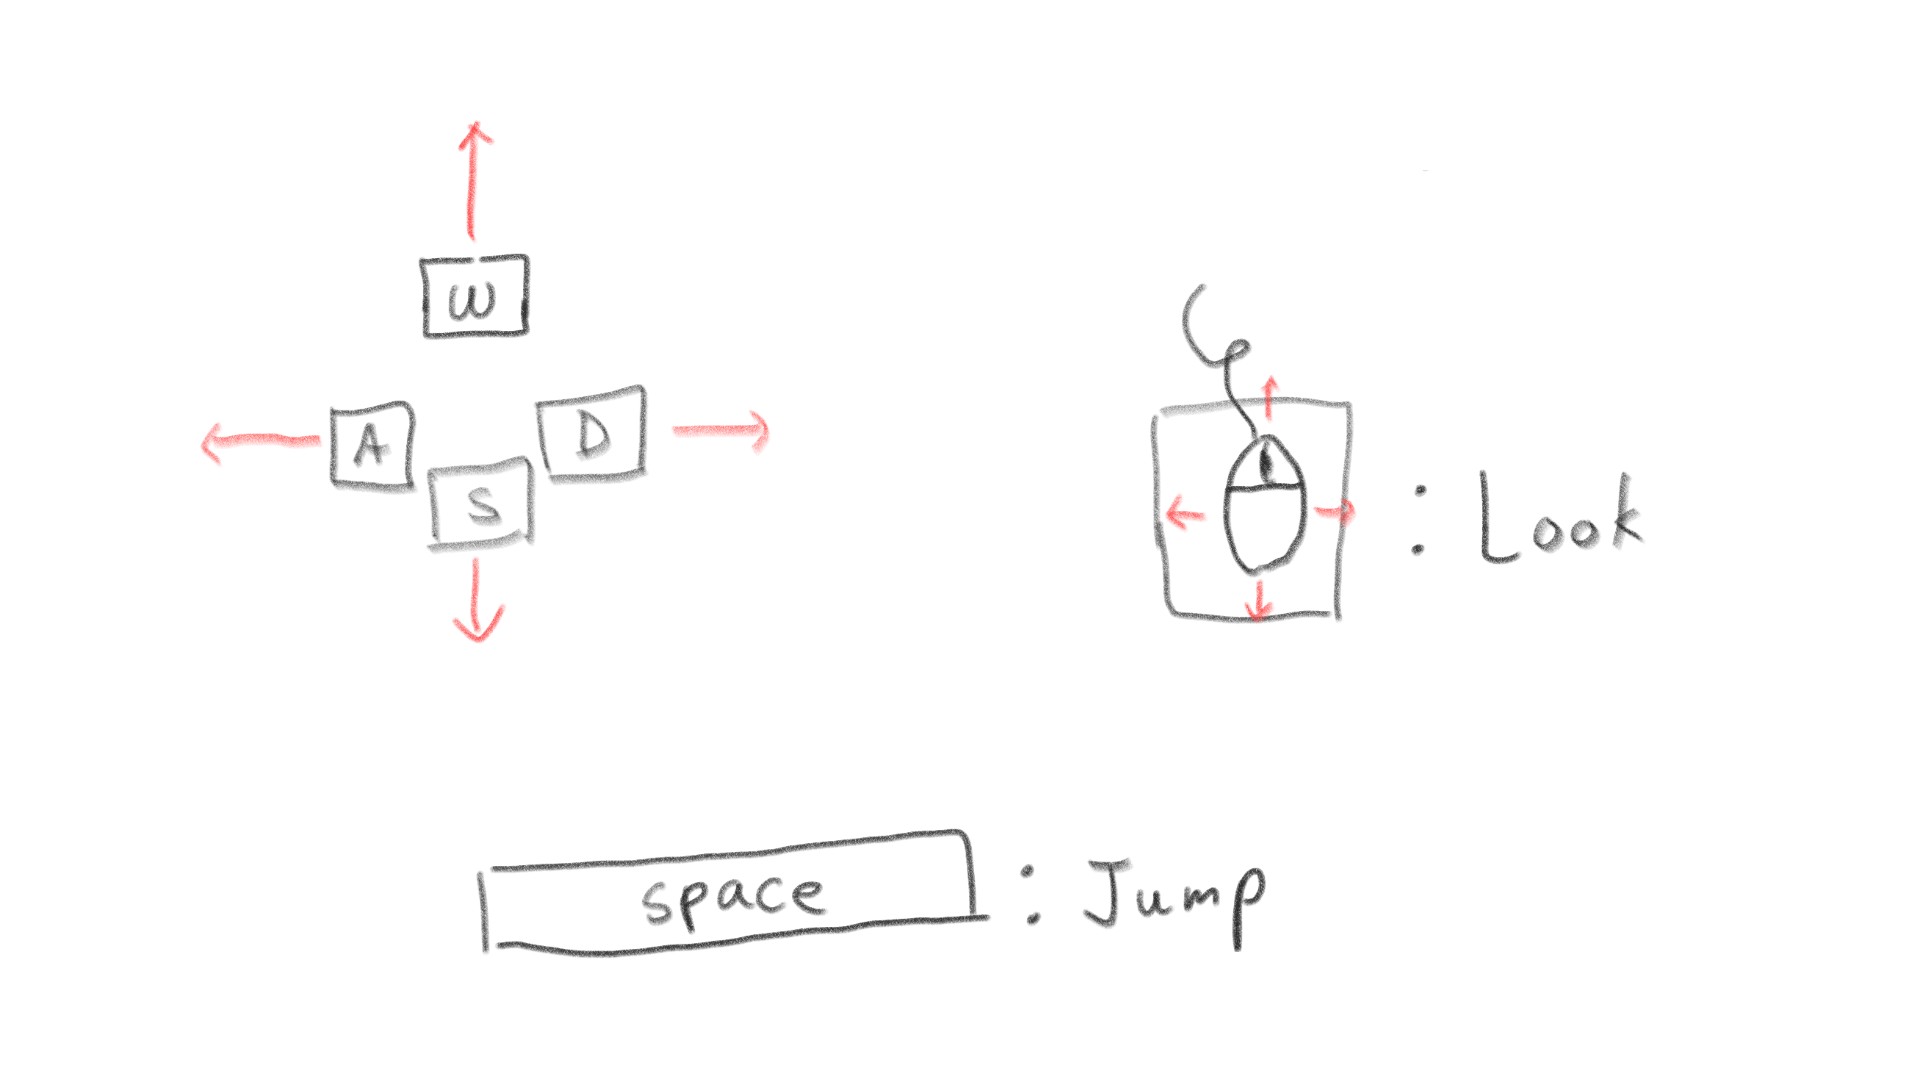 W
A
D
S
: Look
space : Jump